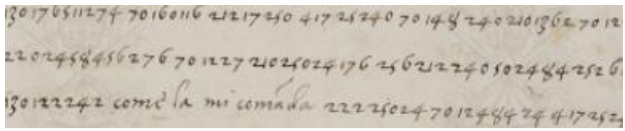 130176511274 70160116 21217250417252407014824021013627012
2202458456276 7012721025024176 256212240502484252 6
130122242 come la mi comāda 222250247012484244 17252